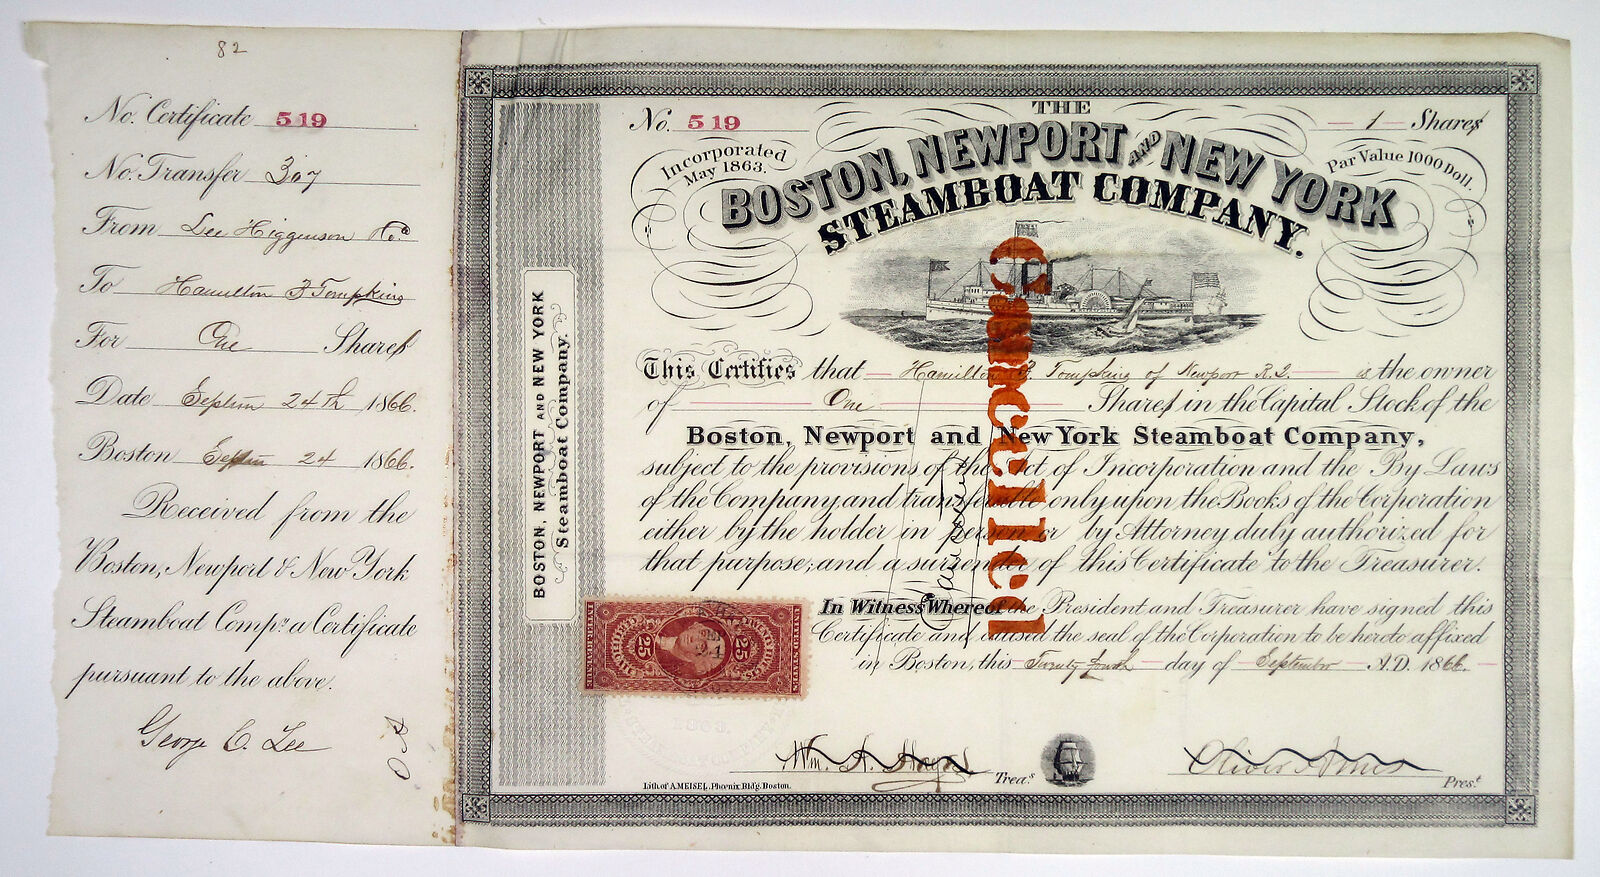 82
No. Certificate 519
No. Transfer 307
From Lee Higginson & Co
To Hamilton Tompkins
For One Shares
Date 24th 1866.
Boston 24 1866.
Received from the
Boston, Newport & New York
Steamboat Compy. a Certificate
pursuant to the above.
George C. Lee
BOSTON, NEWPORT AND NEW YORK
Steamboat Company.
No. 519
1 Shares
Incorporated
May 1863.
Par Value 1000 Doll.
THE
BOSTON, NEWPORT AND NEW YORK
STEAMBOAT COMPANY.
This Certifies that Hamilton Tompkins of Newport R.I. is the owner
of One Shares in the Capital Stock of the
Boston, Newport and New York Steamboat Company,
subject to the provisions of the Act of Incorporation and the By Laws
of the Company and transferable only upon the Books of the Corporation
either by the holder in person or by Attorney duly authorized for
that purpose, and a surrender of this Certificate to the Treasurer.
In Witness Whereof the President and Treasurer have signed this
Certificate and caused the seal of the Corporation to be hereto affixed
in Boston, this Twenty fourth day of September A.D. 1866.
Cancelled
25 25
1863
Wm. Treas.
Oliver Ames Prest.
Lith. of A. MEISEL, Phœnix Bldg. Boston.